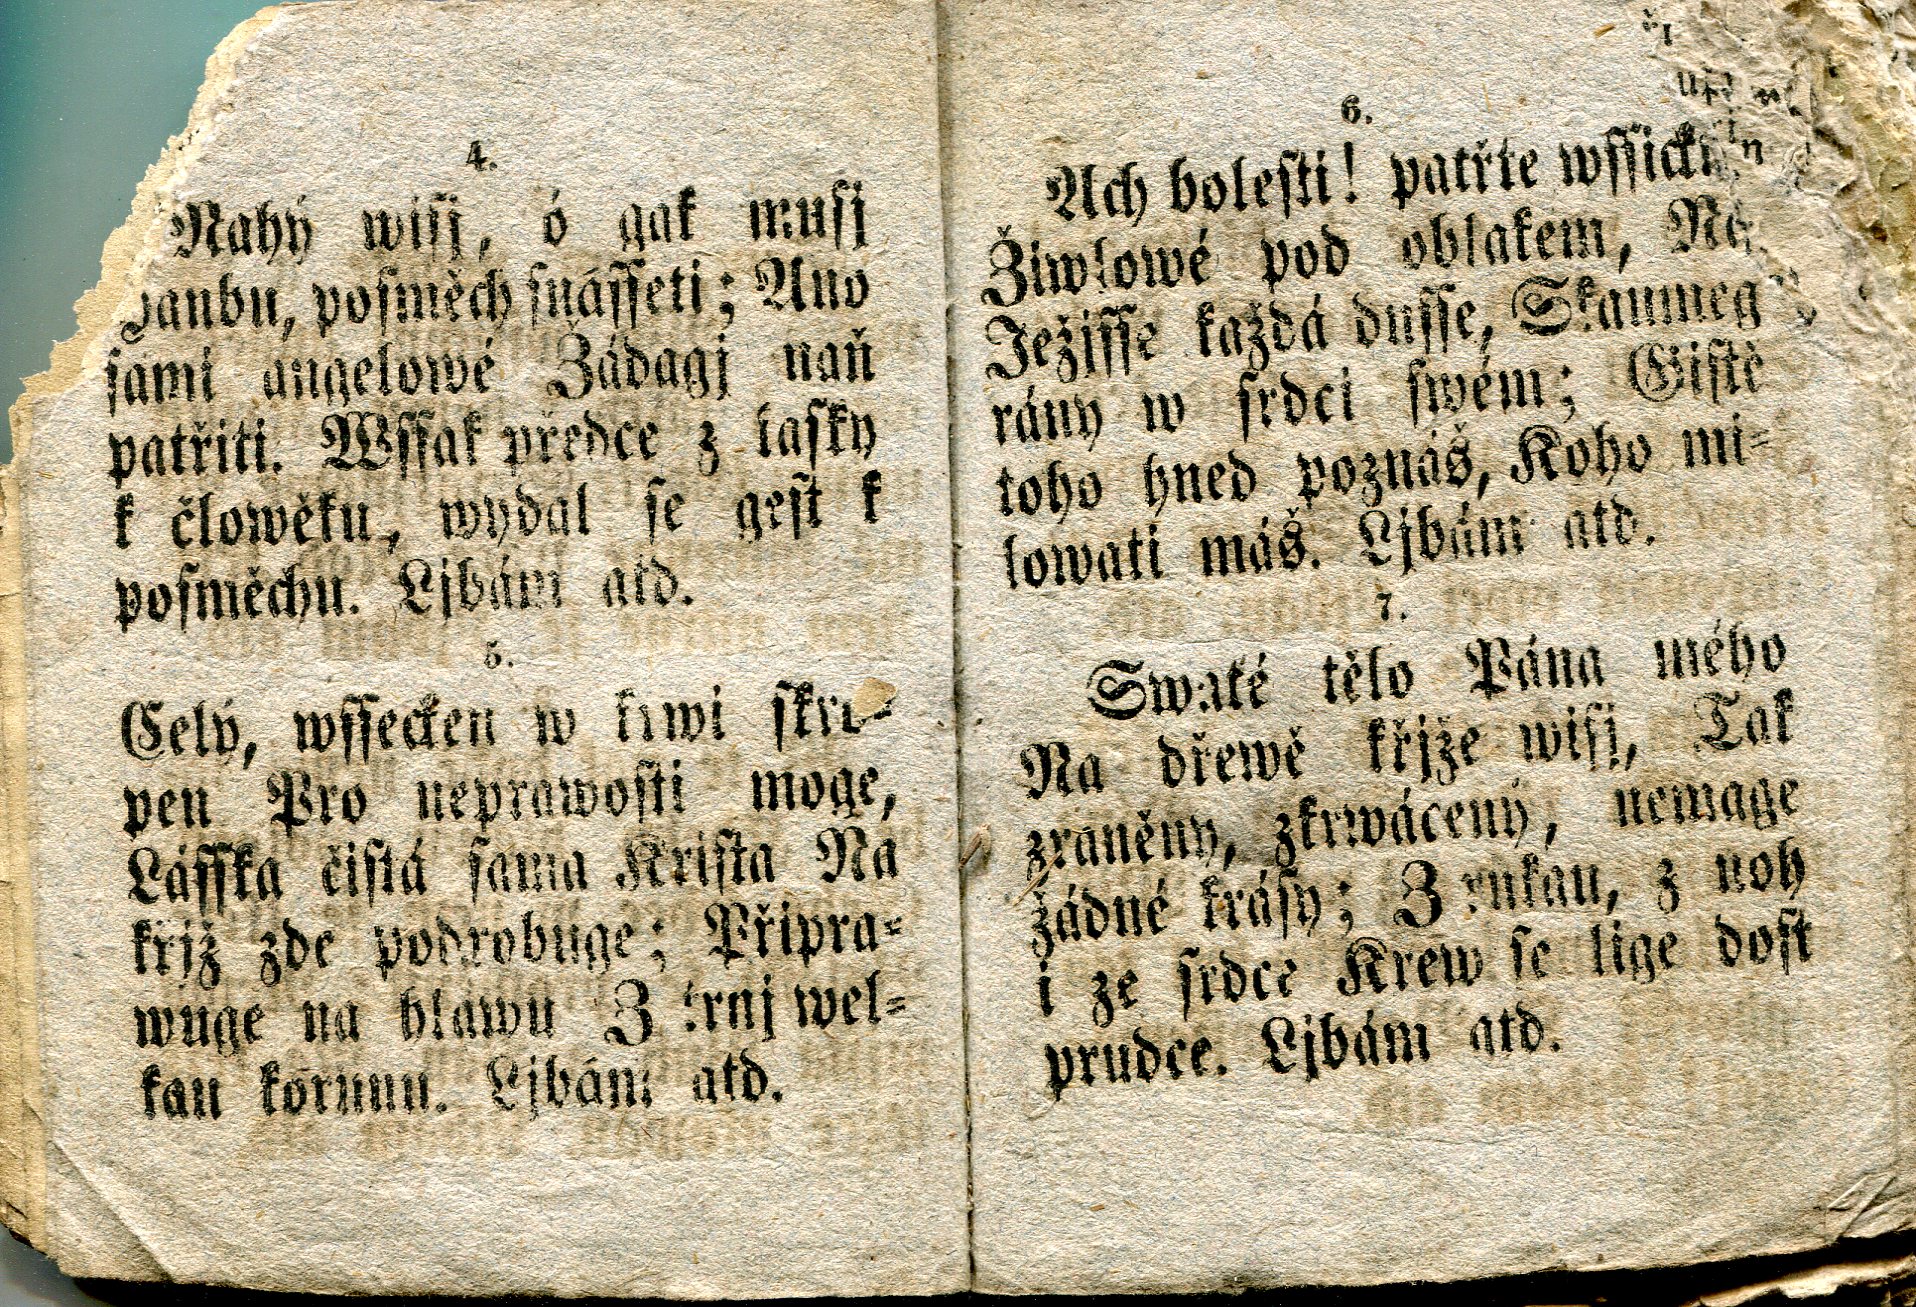 4.
Nahý wisý, ó gak musý
hanbu, posměch snásseti; Ano
sami angelowé Žádagj naň
patřiti. Wssak předce z lasky
k člowěku, wydal se gest k
posměchu. Ljbám atd.
5.
Celý, wssecken w krwi skro-
pen Pro neprawosti moge,
Lásska čistá sama Krista Na
křjž zde podrobuge; Připra-
wuge na hlawu Z trnj wel-
kau korunu. Ljbám atd.
6.
Ach bolesti! patřte wssickni
Žiwlowé pod oblakem,
Ježisse každá dusse, Skaumeg
rány w srdci swém; Gistě
toho hned poznáš, Koho mi-
lowati máš. Ljbám atd.
7.
Swaté tělo Pána mého
Na dřewě křjže wisý, Tak
zraněný, zkrwácený, nemage
žádné krásy; Z rukau, z noh
i ze srdce Krew se lige dost
prudce. Ljbám atd.